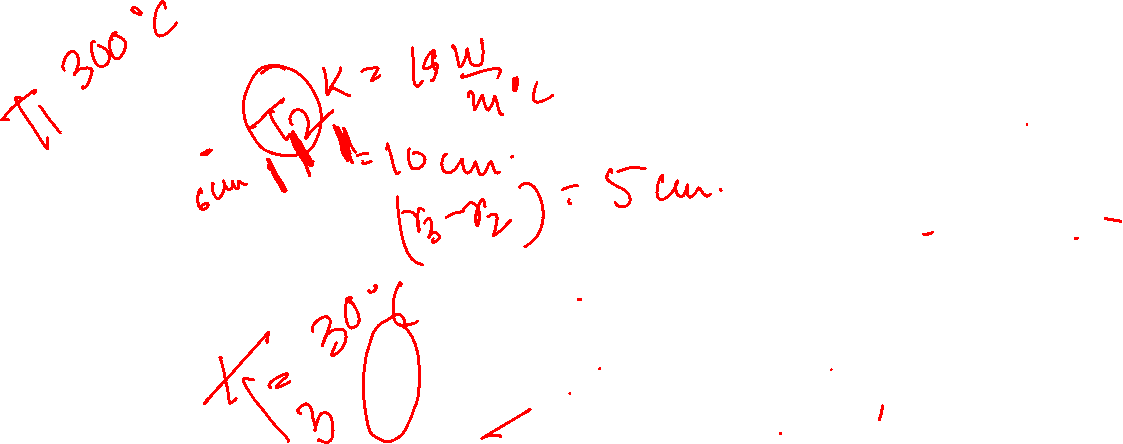 T1 300°C
T2 K = 19 W/m°C
6cm = 10 cm.
(r3-r2) = 5 cm.
T3 = 30°C